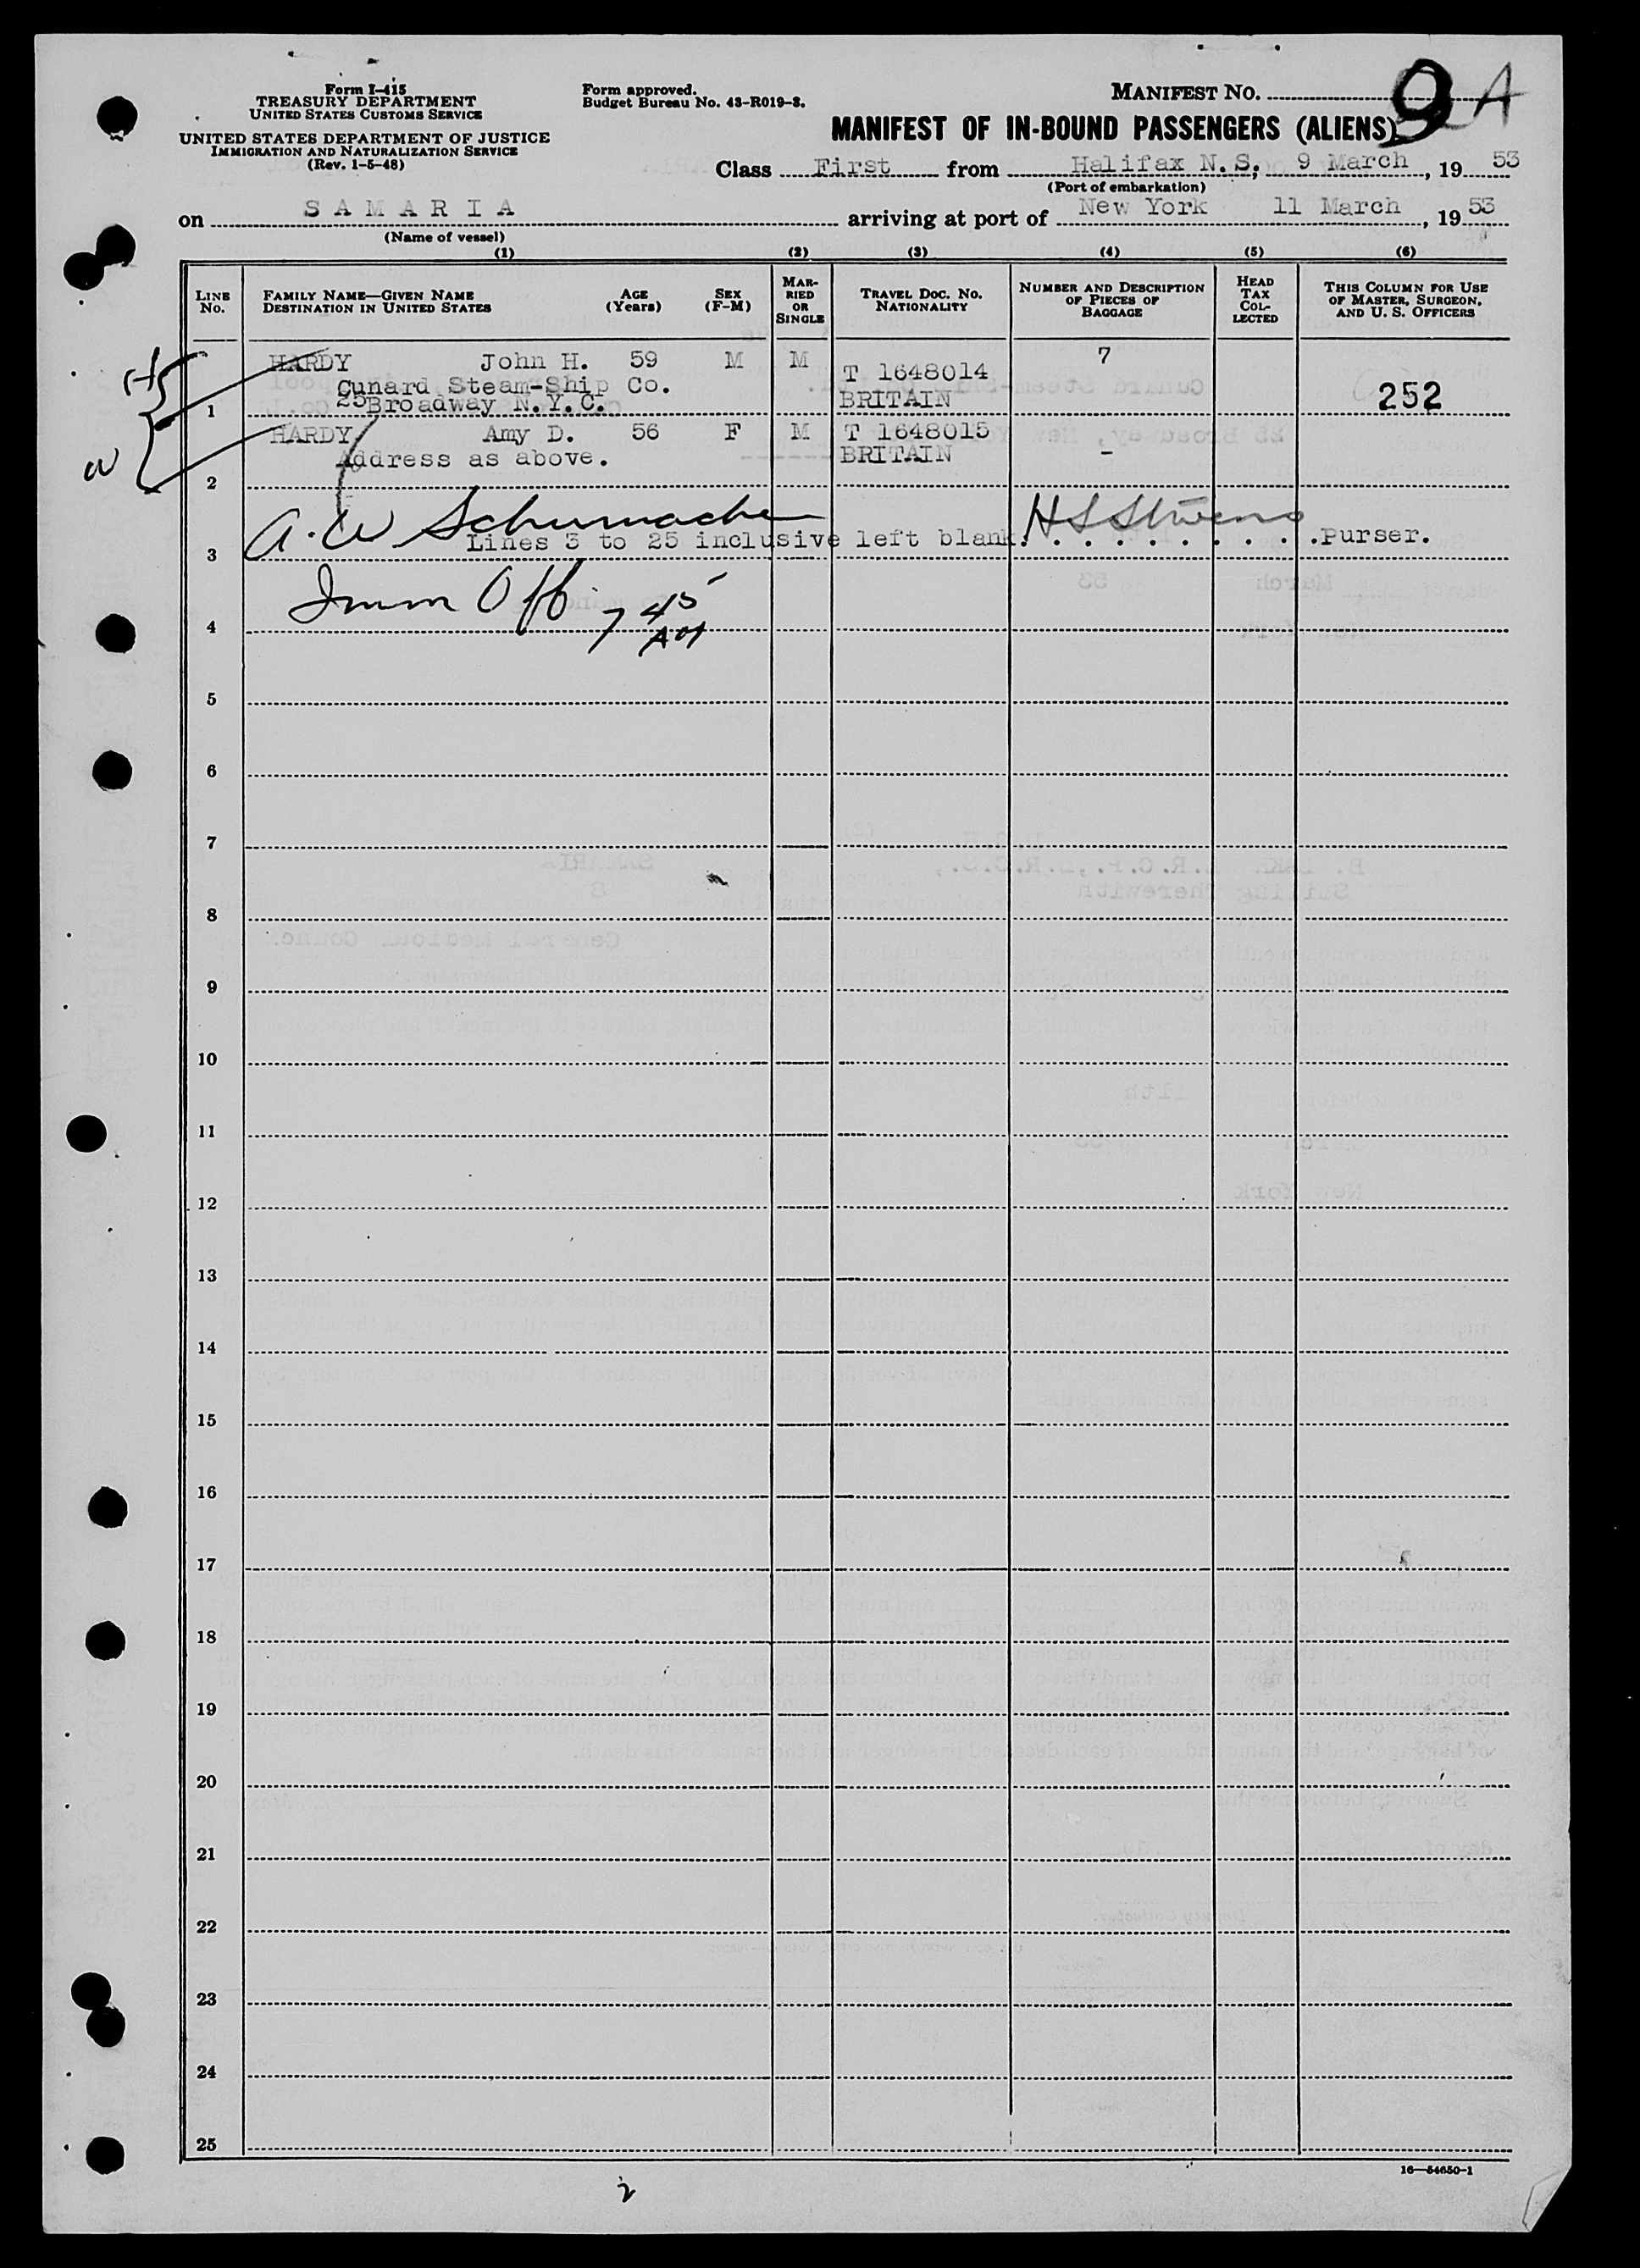 Form I-415
TREASURY DEPARTMENT
UNITED STATES CUSTOMS SERVICE
UNITED STATES DEPARTMENT OF JUSTICE
IMMIGRATION AND NATURALIZATION SERVICE
(Rev. 1-5-48)
Form approved.
Budget Bureau No. 43-R019-3.
MANIFEST NO. 9 A
MANIFEST OF IN-BOUND PASSENGERS (ALIENS)
Class First from Halifax N.S, 9 March, 19 53
(Port of embarkation)
on SAMARIA arriving at port of New York 11 March, 19 53
(Name of vessel)
(1) (2) (3) (4) (5) (6)
LINE No. FAMILY NAME—GIVEN NAME DESTINATION IN UNITED STATES AGE (Years) SEX (F-M) MARRIED OR SINGLE TRAVEL DOC. NO. NATIONALITY NUMBER AND DESCRIPTION OF PIECES OF BAGGAGE HEAD TAX COLLECTED THIS COLUMN FOR USE OF MASTER, SURGEON, AND U. S. OFFICERS
HARDY John H. 59 M M T 1648014 7
Cunard Steam-Ship Co. BRITAIN 252
1 25 Broadway N.Y.C.
HARDY Amy D. 56 F M T 1648015
Address as above. BRITAIN -
2
A. W Schumacher H S Stivens
3 Lines 3 to 25 inclusive left blank. . . . . . . . . . .Purser.
Imm Off. 7 45 AM
4
5
6
7
8
9
10
11
12
13
14
15
16
17
18
19
20
21
22
23
24
25
16—54650-1
2